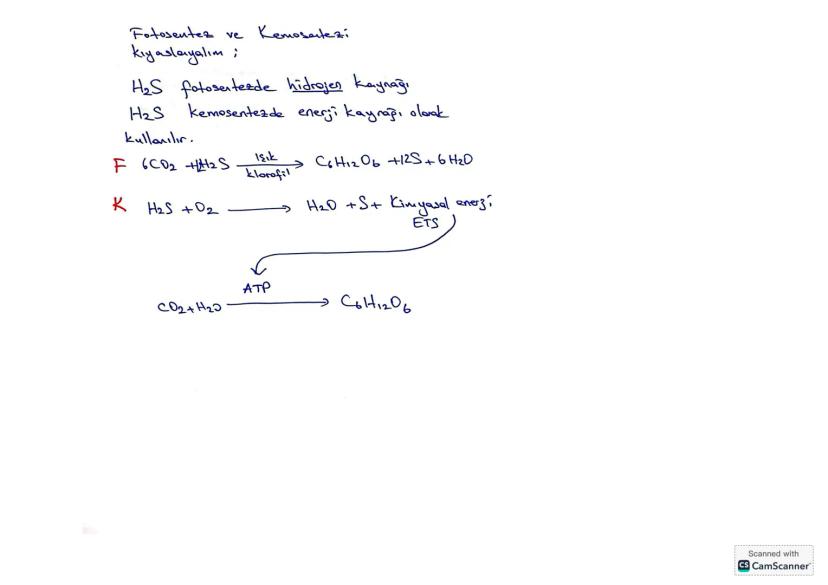 Fotosentez ve Kemosentezi
kıyaslayalım ;
H₂S fotosentezde hidrojen kaynağı
H₂S kemosentezde enerji kaynağı olarak
kullanılır.
F 6CO₂ +12H₂S ışık klorofil → C₆H₁₂O₆ +12S+6H₂O
K H₂S +O₂ → H₂O +S+ Kimyasal enerji
ETS
ATP
CO₂+H₂O → C₆H₁₂O₆
Scanned with
CS CamScanner